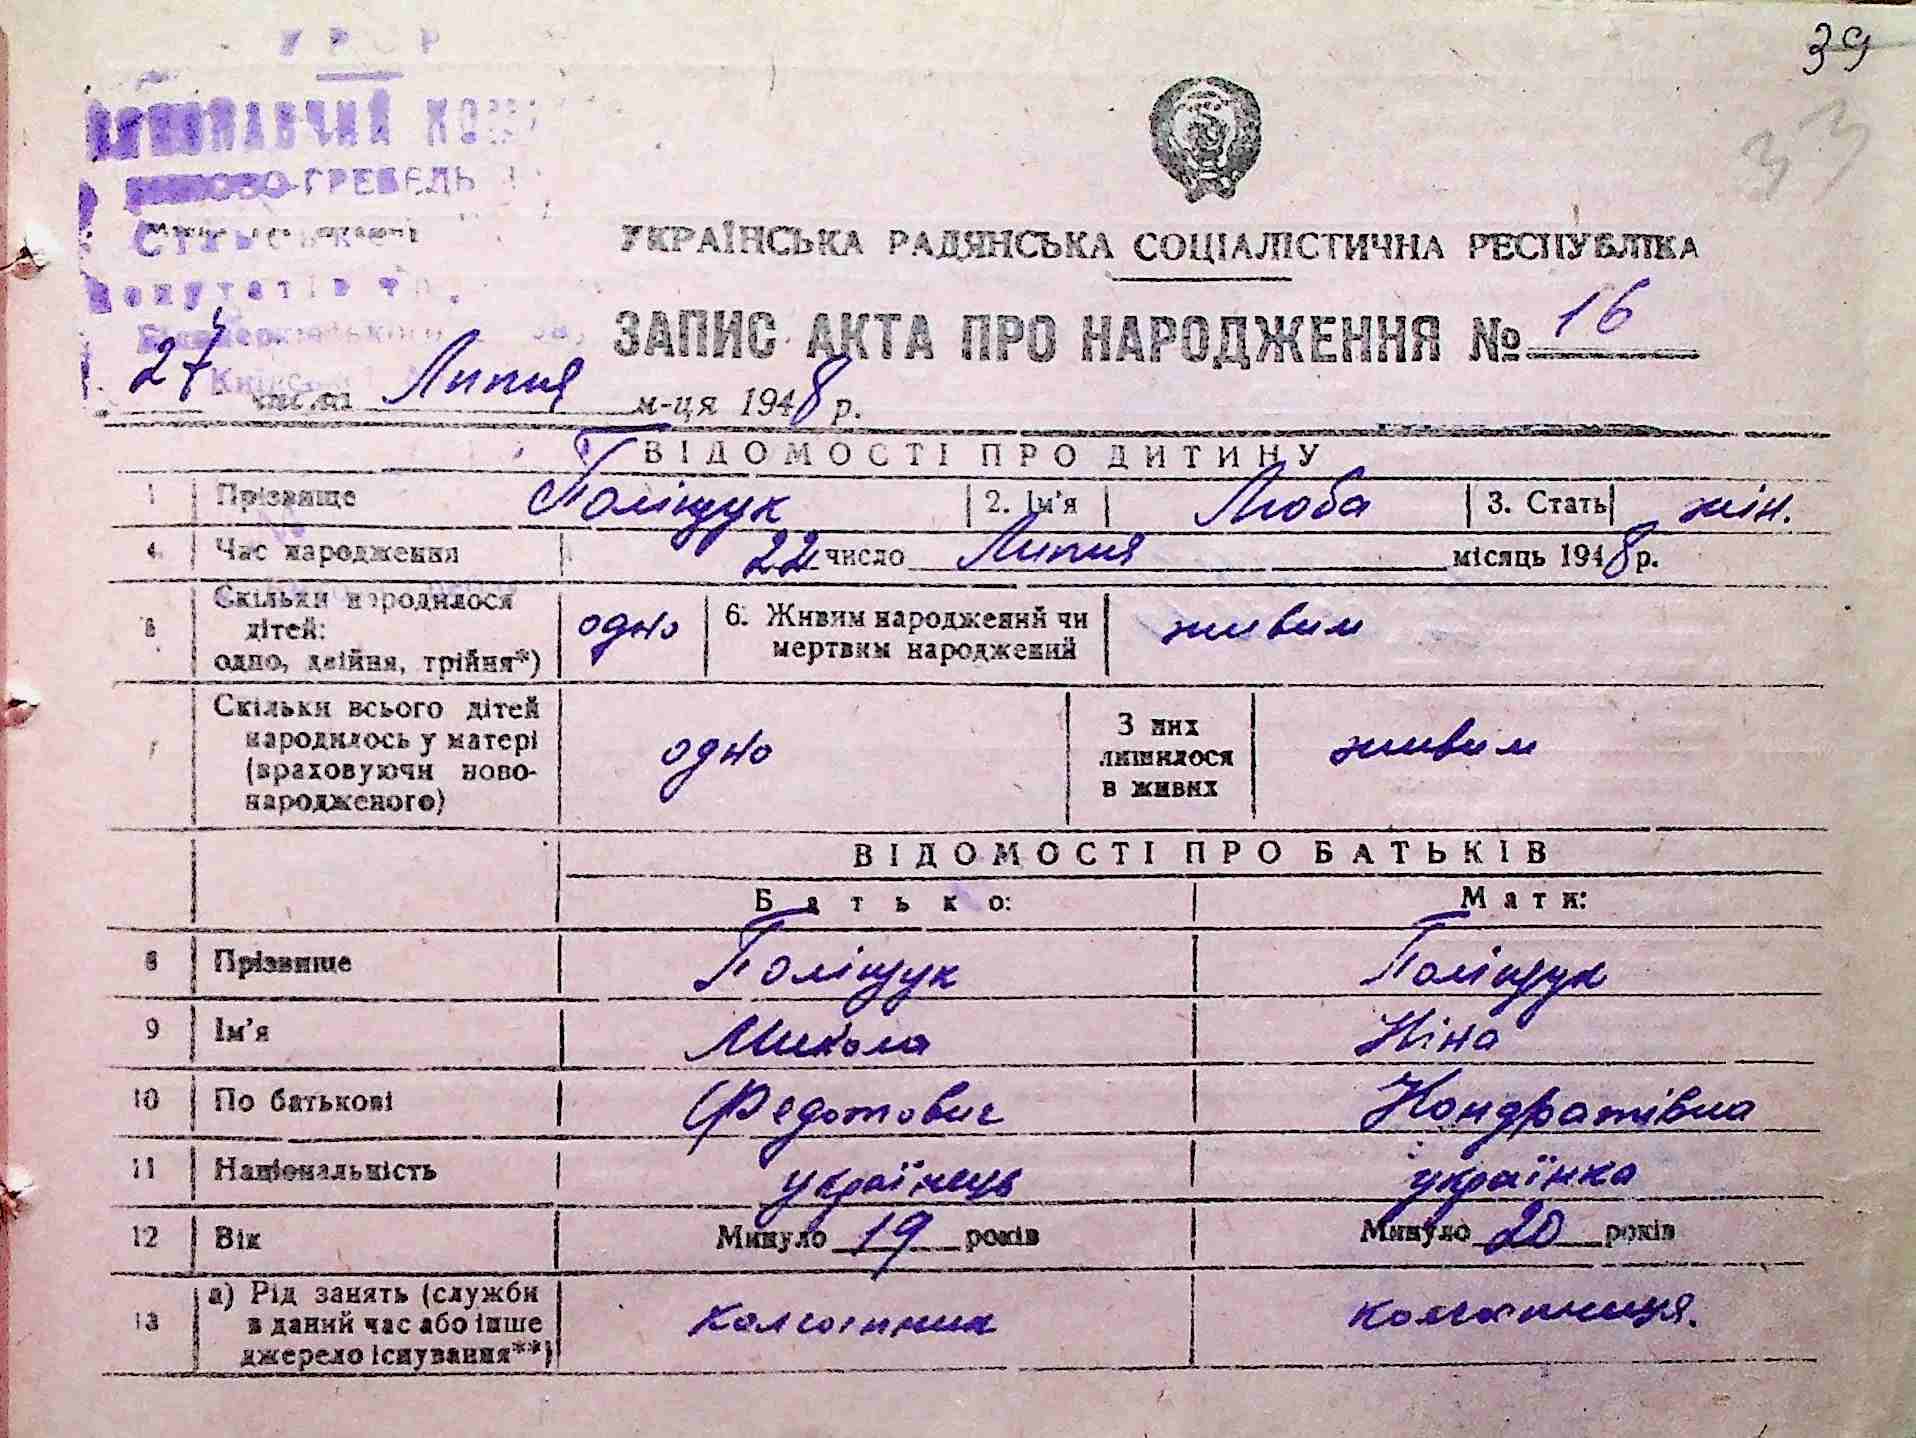 39
33
У Р С Р
ВИКОНАВЧИЙ
ГРЕБЕЛЬ
депутатів
УКРАЇНСЬКА РАДЯНСЬКА СОЦІАЛІСТИЧНА РЕСПУБЛІКА
ЗАПИС АКТА ПРО НАРОДЖЕННЯ № 16
27 числа Липня м-ця 1948 р.
ВІДОМОСТІ ПРО ДИТИНУ
1 Прізвище Поліщук 2. Ім'я Люба 3. Стать жін.
4. Час народження 22 число Липня місяць 1948 р.
5 Скільки народилося дітей: одно, двійня, трійня*) одно 6. Живим народжений чи мертвим народжений живим
7 Скільки всього дітей народилось у матері (враховуючи ново-народженого) одно З них лишилося в живих живим
ВІДОМОСТІ ПРО БАТЬКІВ
Батько: Мати:
8 Прізвище Поліщук Поліщук
9 Ім'я Микола Ніна
10 По батькові Федотович Кондратівна
11 Національність українець українка
12 Вік Минуло 19 років Минуло 20 років
13 а) Рід занять (служби в даний час або інше джерело існування**) колгоспник колгоспниця.